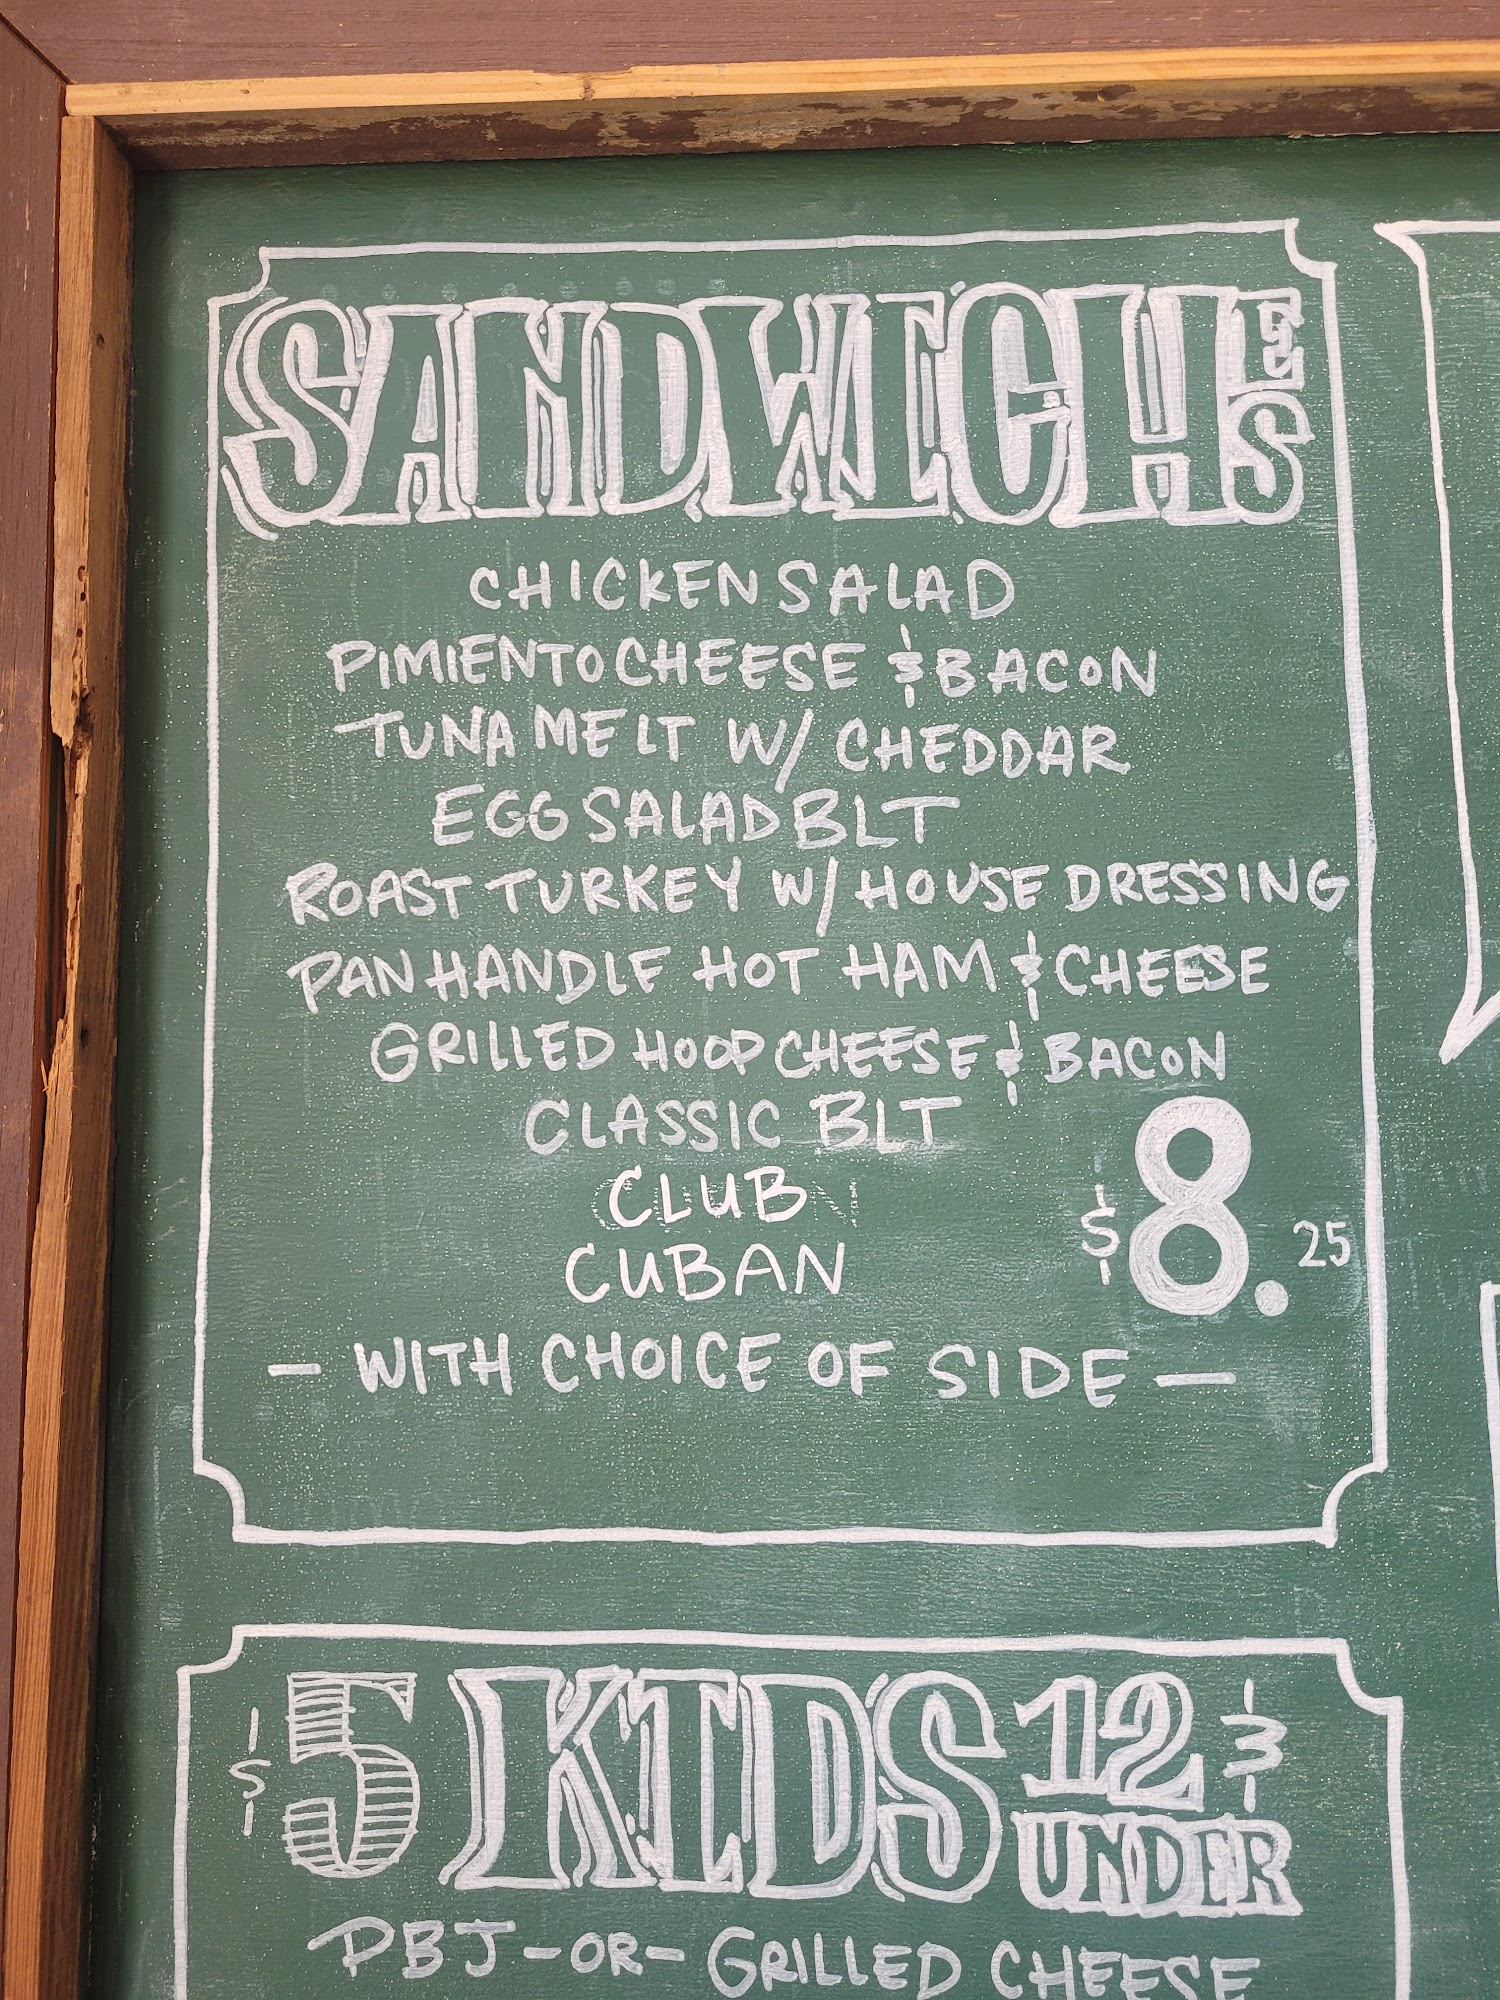 SANDWICHES
CHICKEN SALAD
PIMIENTO CHEESE & BACON
TUNA MELT W/ CHEDDAR
EGG SALAD BLT
ROAST TURKEY W/ HOUSE DRESSING
PANHANDLE HOT HAM & CHEESE
GRILLED HOOP CHEESE & BACON
CLASSIC BLT
CLUB
CUBAN
$8.25
— WITH CHOICE OF SIDE —
$5 KIDS 12 & UNDER
PBJ -OR- GRILLED CHEESE